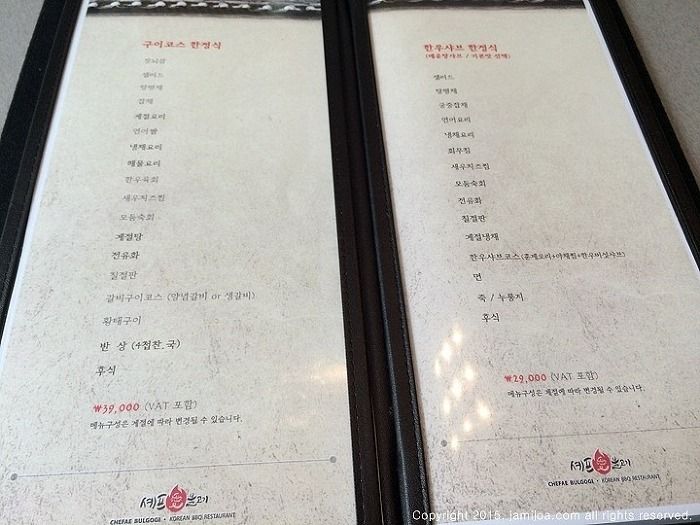 구이코스 한정식
샐러드
탕평채
잡채
계절요리
연어쌈
냉채요리
해물요리
한우육회
새우치즈찜
모둠숙회
계절탕
전유화
칠절판
갈비구이코스 (양념갈비 or 생갈비)
황태구이
반 상 (4접찬.국)
후식
₩39,000 (VAT 포함)
메뉴구성은 계절에 따라 변경될 수 있습니다.
CHEFAE BULGOGI • KOREAN BBQ RESTAURANT
한우샤브 한정식
샐러드
탕평채
궁중잡채
연어요리
냉채요리
회무침
새우치즈찜
모둠숙회
전유화
칠절판
계절냉채
한우샤브코스(훈제오리+야채찜+한우버섯샤브)
면
죽 / 누룽지
후식
₩29,000 (VAT 포함)
메뉴구성은 계절에 따라 변경될 수 있습니다.
CHEFAE BULGOGI • KOREAN BBQ RESTAURANT
Copyright 2015. iamjloa.com all rights reserved.